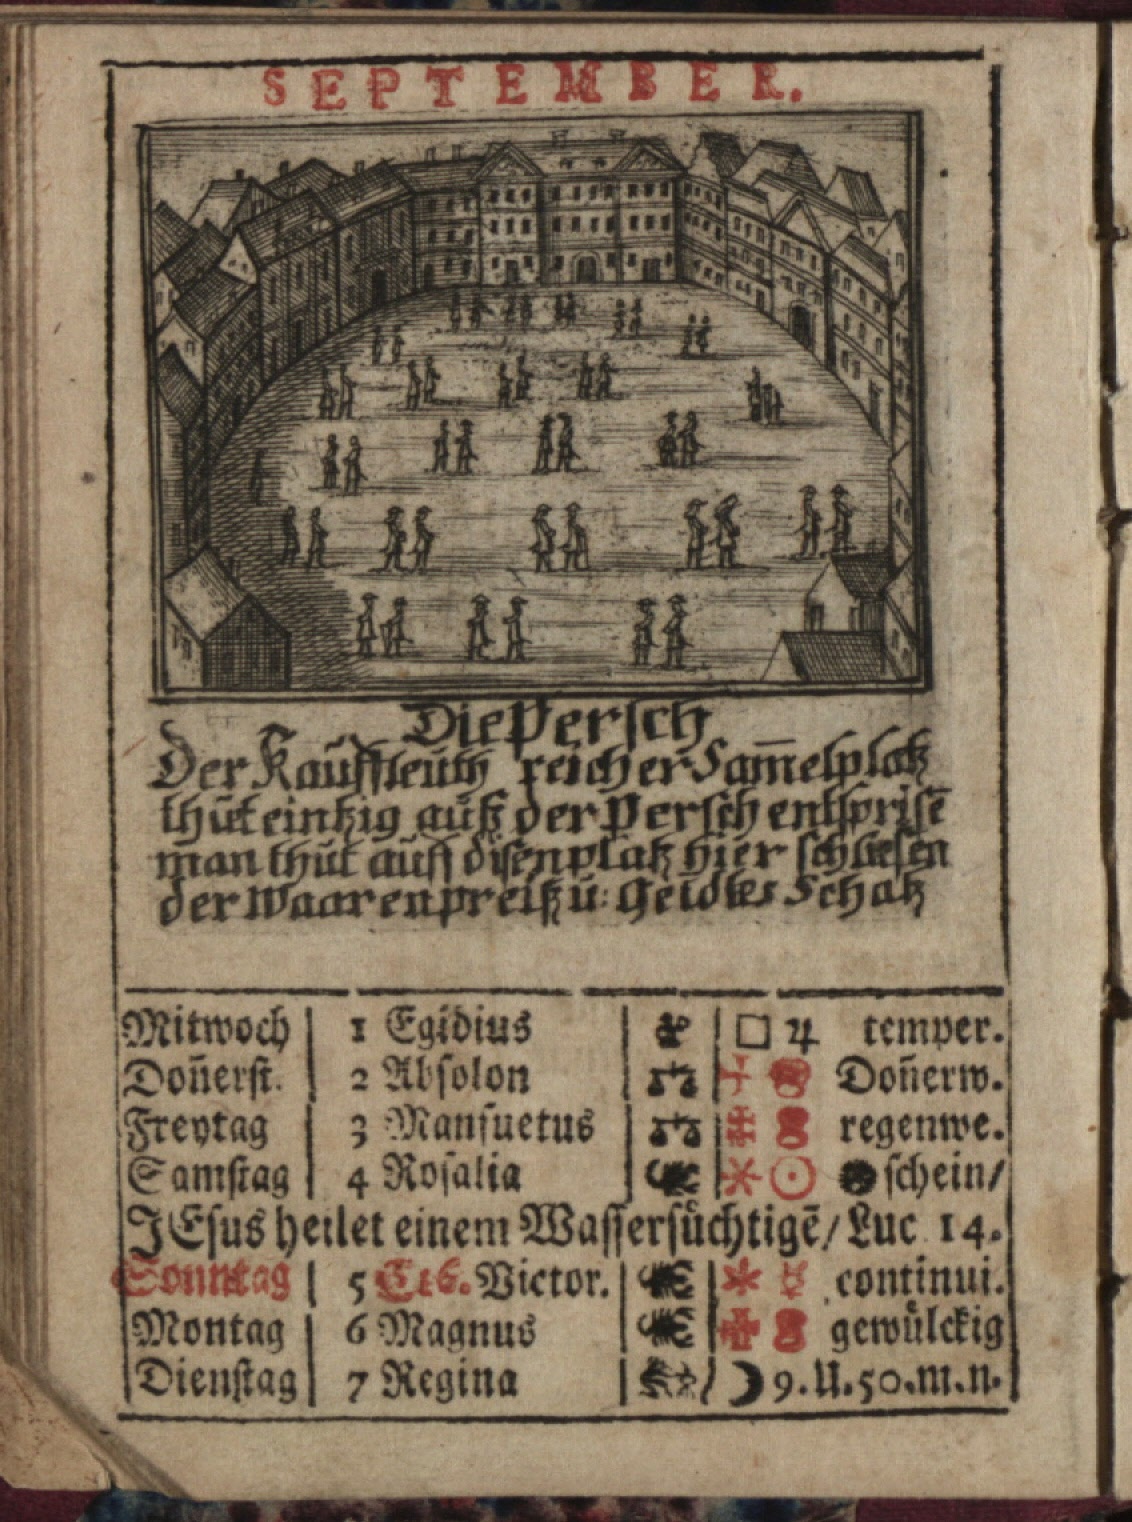 SEPTEMBER.
Die Persch
Der Kauffleuth reicher Sam̄elplatz
thut eintzig auß der Persch entsprisē
man thut auff disen platz hier schliesen
der Waaren preiß u: Geldtes Schatz
Mitwoch | 1 Egidius | □ ♃ temper.
Don̄erst. | 2 Absolon | ♎ Don̄erw.
Freytag | 3 Mansuetus | ♎ regenwe.
Samstag | 4 Rosalia | ♏ * ☉ schein/
JEsus heilet einem Wassersuͤchtigē/ Luc. 14.
Sonntag | 5 C16. Victor. | ♏ * ☿ continui.
Montag | 6 Magnus | ♏ gewuͤlckig
Dienstag | 7 Regina | ☽ 9.U.50.m.n.